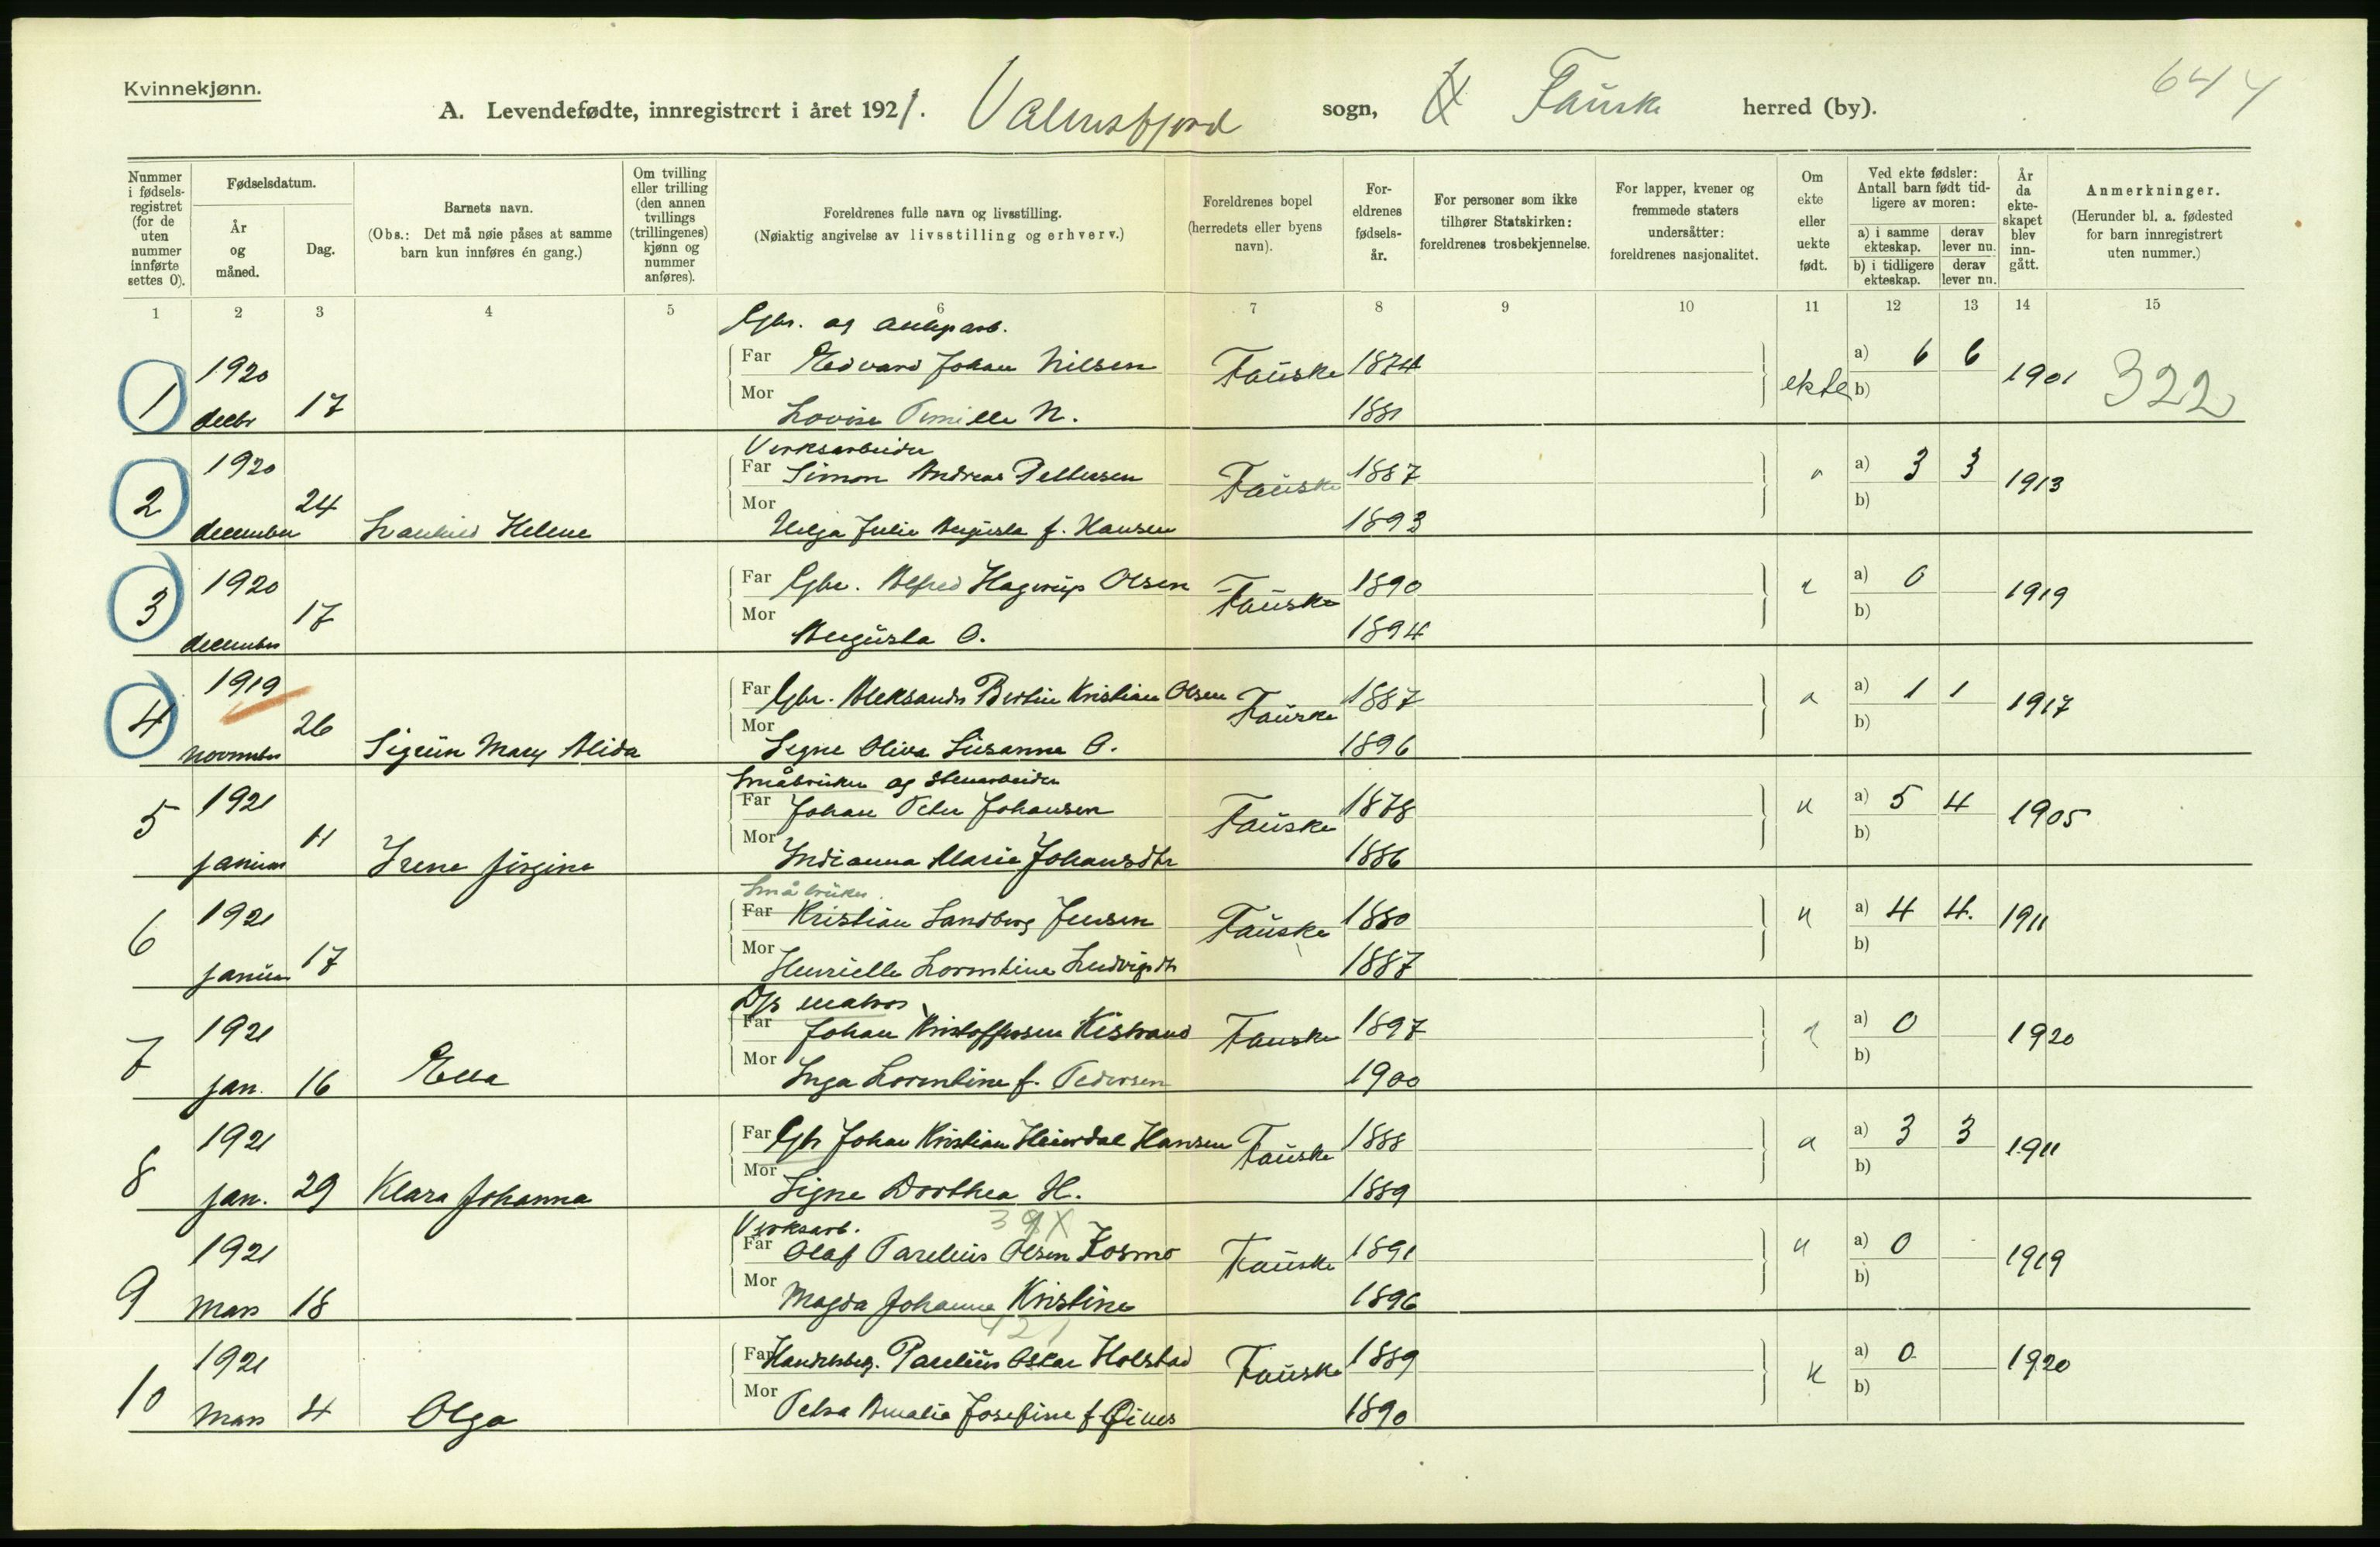 Kvinnekjønn.
644
A. Levendefødte, innregistrert i året 1921. Valnesfjord sogn, Fauske herred (by).
Nummer i fødselsregistret (for de uten nummer innførte settes 0).
Fødselsdatum.
År og måned.
Dag.
Barnets navn.
(Obs.: Det må nøie påses at samme barn kun innføres én gang.)
Om tvilling eller trilling (den annen tvillings (trillingenes) kjønn og nummer anføres).
Foreldrenes fulle navn og livsstilling.
(Nøiaktig angivelse av livsstilling og erhverv.)
Foreldrenes bopel (herredets eller byens navn).
Foreldrenes fødselsår.
For personer som ikke tilhører Statskirken: foreldrenes trosbekjennelse.
For lapper, kvener og fremmede staters undersåtter: foreldrenes nasjonalitet.
Om ekte eller uekte født.
Ved ekte fødsler: Antall barn født tidligere av moren:
a) i samme ekteskap. derav lever nu.
b) i tidligere ekteskap. derav lever nu.
År da ekteskapet blev inngått.
Anmerkninger.
(Herunder bl. a. fødested for barn innregistrert uten nummer.)
1 2 3 4 5 6 7 8 9 10 11 12 13 14 15
Gbr. og anlegsarb.
1 1920 decbr 17 Far Edvard Johan Nilsen Fauske 1874 ekte a) 6 6 b) 1901 322
Mor Lovise Pernille N. 1881
Verksarbeider
2 1920 december 24 Svanhild Helene Far Simon Andreas Pettersen Fauske 1887 " a) 3 3 b) 1913
Mor Helga Julie Augusta f. Hansen 1893
3 1920 december 17 Far Gbr. Alfred Hagerup Olsen Fauske 1890 " a) 0 b) 1919
Mor Augusta O. 1894
4 1919 november 26 Sigrun Mary Alida Far Gbr. Aleksander Bertin Kristian Olsen Fauske 1887 " a) 1 1 b) 1917
Mor Signe Oliva Susanna O. 1896
Småbruker og stenarbeider
5 1921 januar 11 Irene Jørgine Far Johan Peter Johansen Fauske 1878 " a) 5 4 b) 1905
Mor Indianna Marie Johansdtr 1886
Småbruker
6 1921 januar 17 Far Kristian Sandberg Jensen Fauske 1880 " a) 4 4. b) 1911
Mor Henriette Lorentine Ludvigsdtr 1887
D/s matros
7 1921 jan. 16 Ella Far Johan Kristoffersen Kistrand Fauske 1897 " a) 0 b) 1920
Mor Inga Lorentine f. Pedersen 1900
8 1921 jan. 29 Klara Johanna Far Gbr Johan Kristian Heierdal Hansen Fauske 1888 " a) 3 3 b) 1911
Mor Signe Dorthea H. 1889
Verksarb. 39X
9 1921 Mars 18 Far Olaf Parelius Olsen Kosmo Fauske 1891 " a) 0 b) 1919
Mor Magda Johanna Kristine 1896
421
10 1921 Mars 4 Olga Far Handelsbetj. Parelius Oskar Holstad Fauske 1889 " a) 0 b) 1920
Mor Petra Amalie Josefine f. Øines 1890